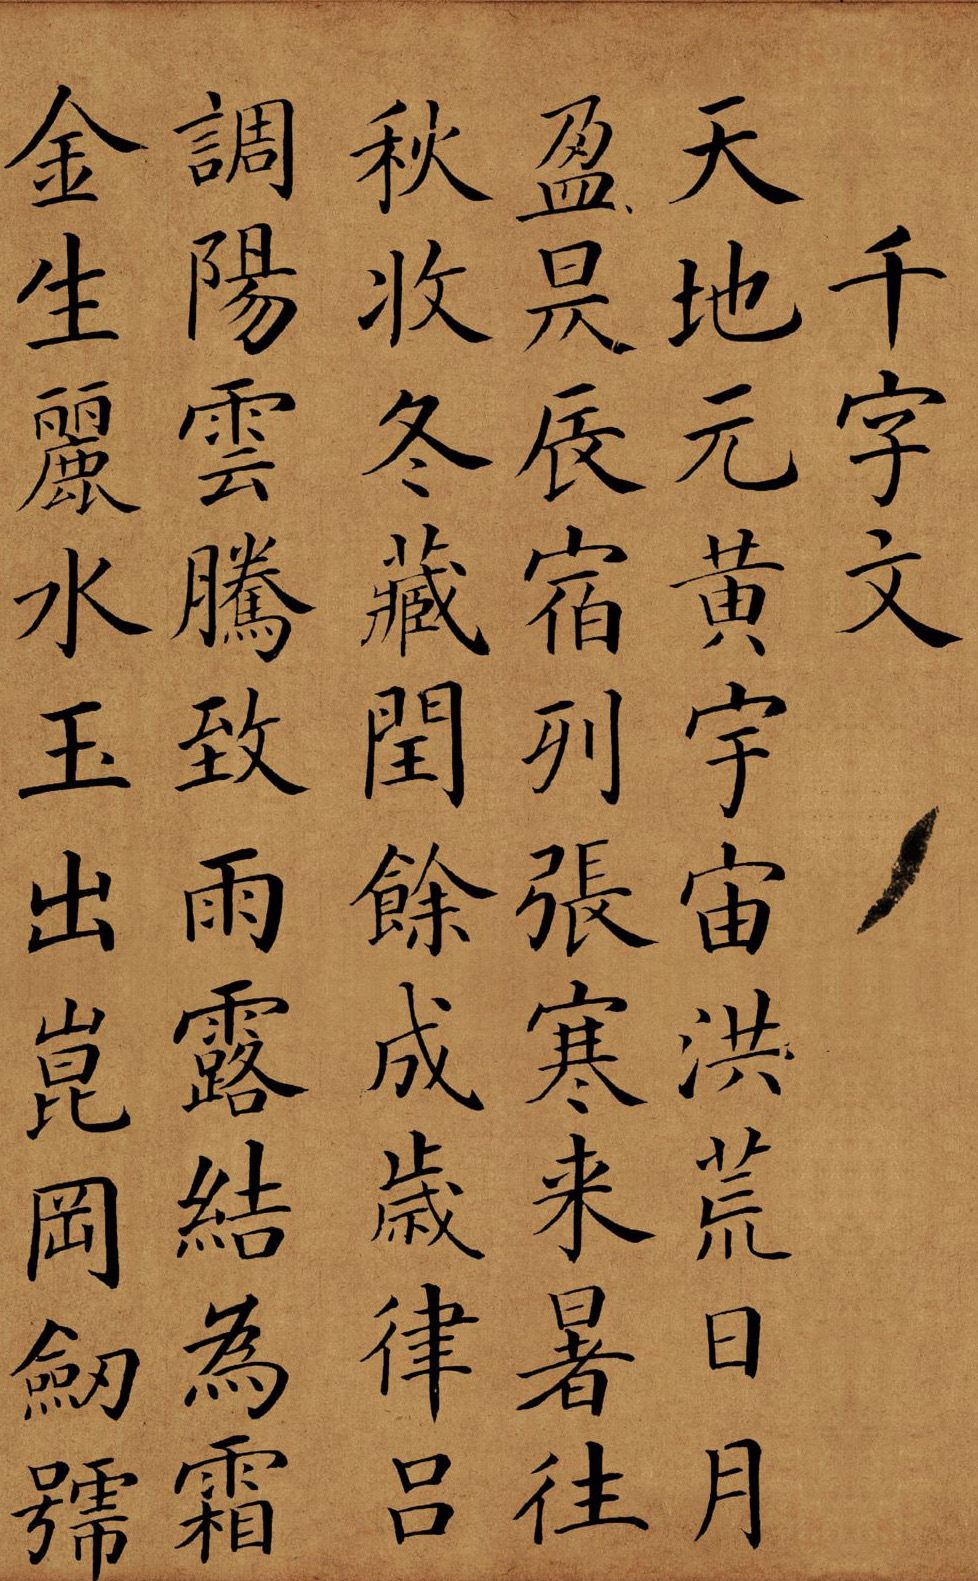 千字文
天地元黄宇宙洪荒日月
盈昃辰宿列張寒来暑徃
秋收冬藏閏餘成歳律吕
調陽雲騰致雨露結為霜
金生麗水玉出崑岡劒號